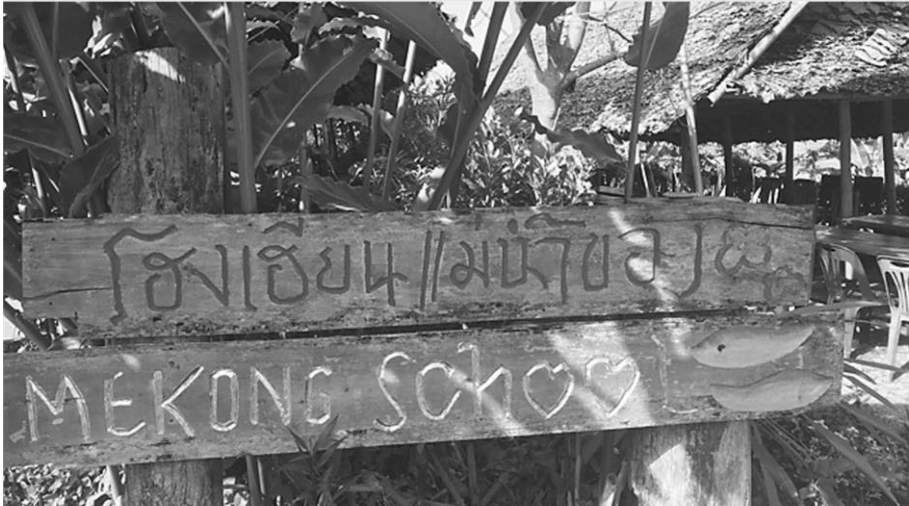 โฮงเฮียนแม่น้ำของ
MEKONG SchOOL